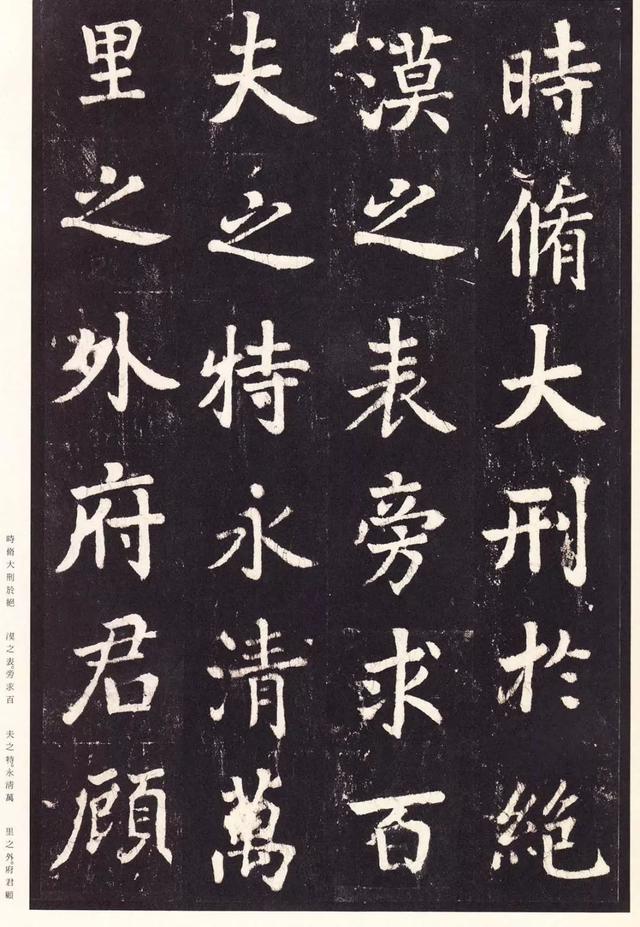 時脩大刑於絕
漠之表旁求百
夫之特永清萬
里之外府君顧
時脩大刑於絕。 漠之表。旁求百 夫之特。永清萬 里之外。府君顧